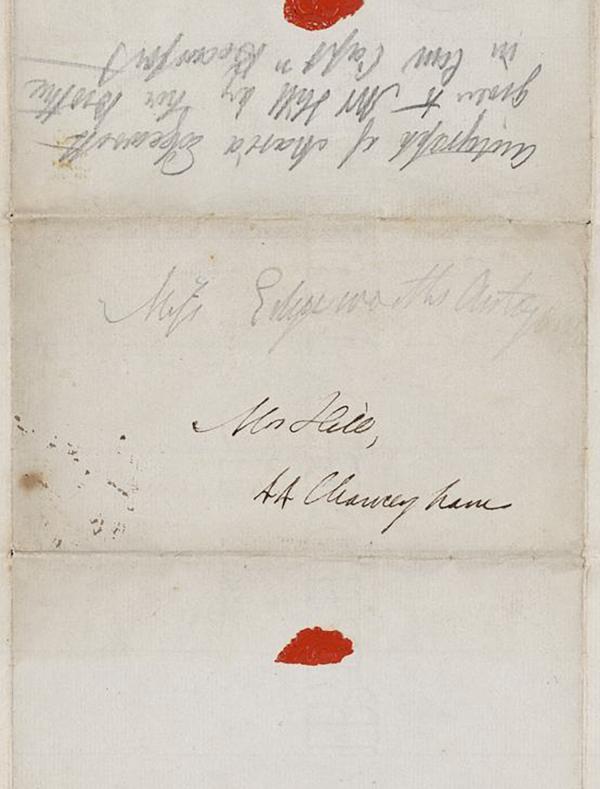 Autograph of Maria Edgeworth
given to Mr Hill by her Brother
in Law Capt n Beaufort
Miss Edgeworths Autog
Mr Hill,
44 Chancey Lane